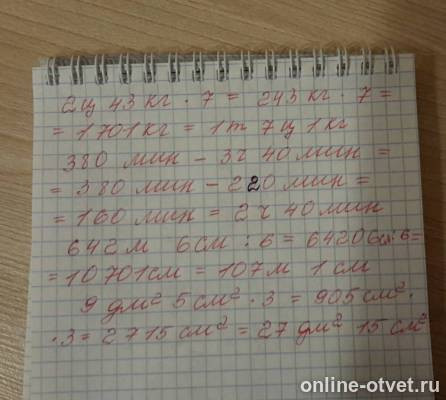 2ц 43 кг · 7 = 243 кг · 7 =
= 1701 кг = 1т 7ц 1 кг
380 мин - 3ч 40 мин =
= 380 мин - 220 мин =
= 160 мин = 2ч 40 мин
642м 6см : 6 = 64206см:6=
= 10701см = 107м 1 см
9 дм² 5 см² · 3 = 905 см² ·
· 3 = 2715 см² = 27 дм² 15 см²
online-otvet.ru